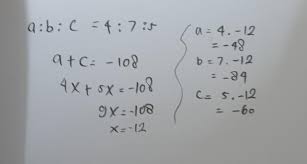 a:b:c = 4:7:5
a+c = -108
4x + 5x = -108
9x = -108
x = -12
a = 4. -12
= -48
b = 7. -12
= -84
c = 5. -12
= -60